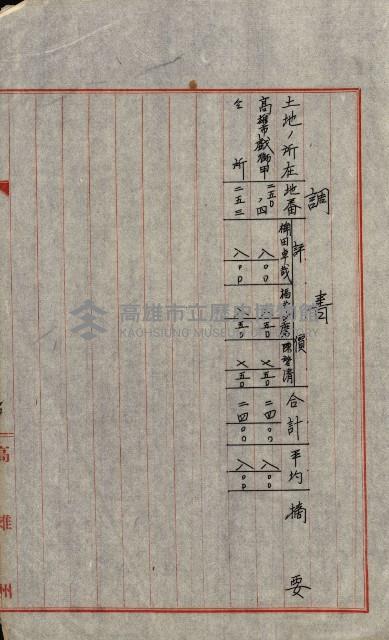 調書
土地ノ所在 地番 評價 合計 平均 摘要
陳啓清
高雄市戲獅甲 二五〇ノ四 八〇〇 五〇 七五〇 二四〇〇 八〇〇
仝所 二五三 八〇〇 五〇 七五〇 二四〇〇 八〇〇
高雄市立歷史博物館
KAOHSIUNG MUSEUM OF HISTORY
高雄州